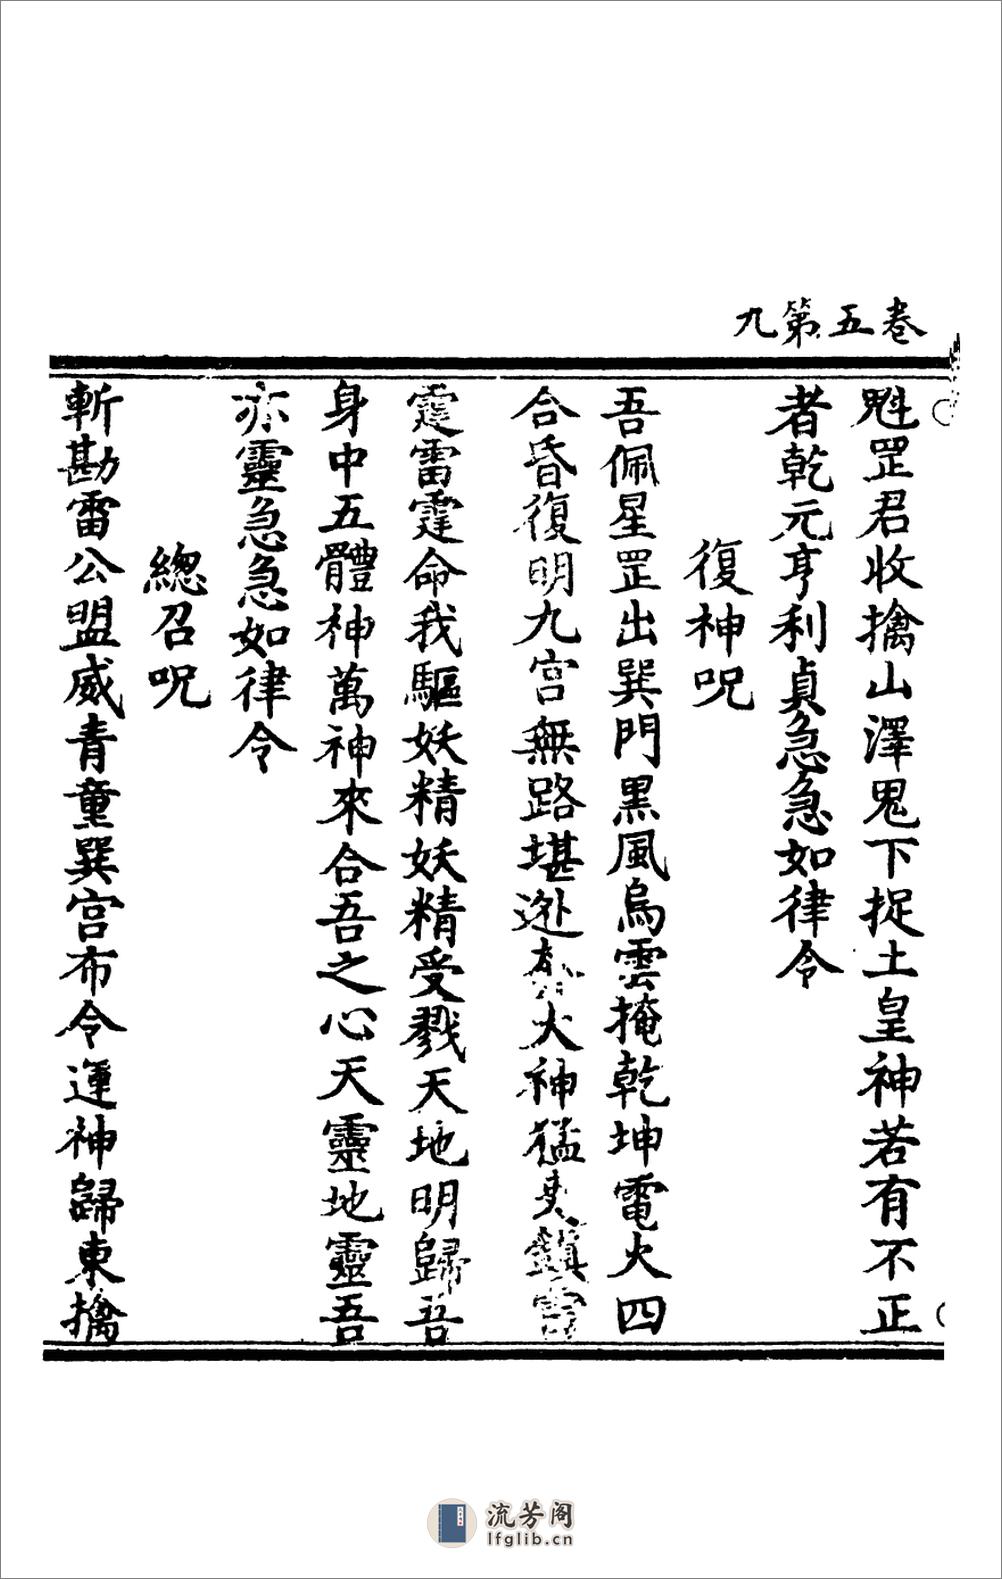 卷五第九
魁罡君收擒山澤鬼下捉土皇神若有不正
者乾元亨利貞急急如律令
復神呪
吾佩星罡出巽門黑風烏雲掩乾坤電火四
合昏復明九宮無路堪逃奔火神猛吏鎮雷
霆雷霆命我驅妖精妖精受戮天地明歸吾
身中五體神萬神來合吾之心天靈地靈吾
亦靈急急如律令
總召呪
斬勘雷公盟威青童巽宮布令運神歸東擒
流芳阁
lfglib.cn